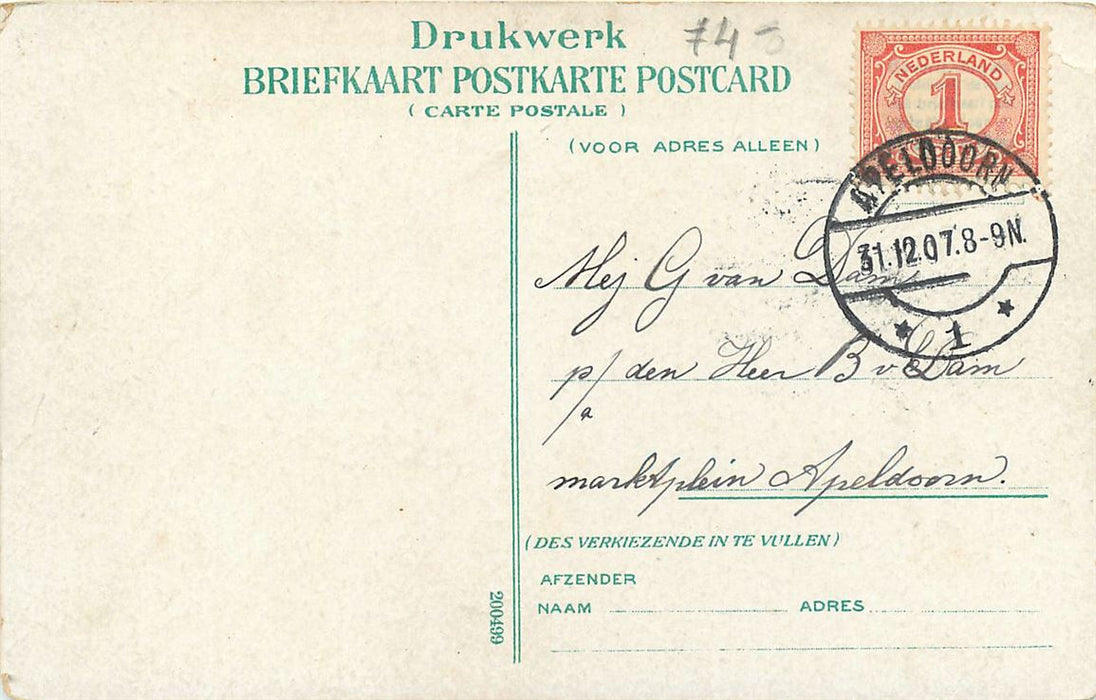 Drukwerk 745
BRIEFKAART POSTKARTE POSTCARD
( CARTE POSTALE )
(VOOR ADRES ALLEEN)
NEDERLAND
1
APELDOORN
31.12.07.8-9N.
1
Mej G van Dam
p/a den Heer B v Dam
marktplein Apeldoorn.
(DES VERKIEZENDE IN TE VULLEN)
AFZENDER
NAAM ADRES
200499